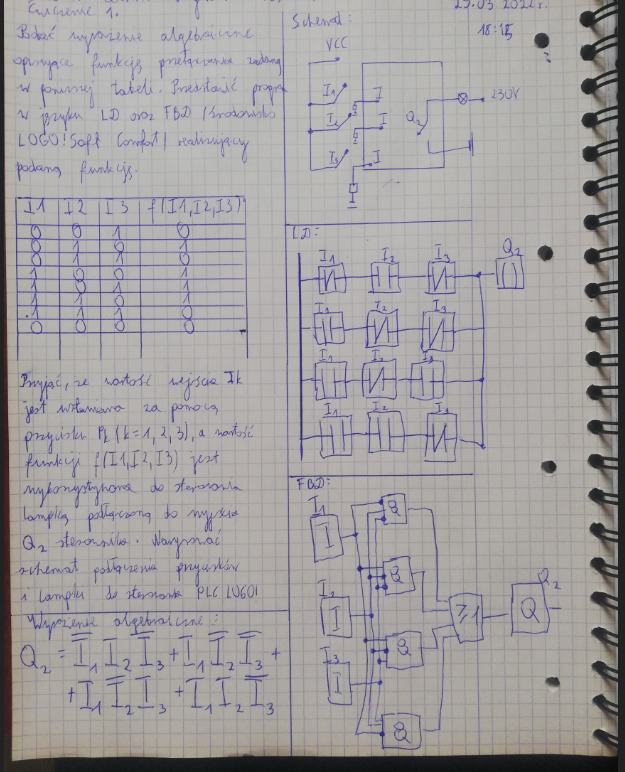 Ćwiczenie 1.
29.03.2022r.
18:15
Podać wyrażenie algebraiczne
opisujące funkcję przełączania zadaną
w poniższej tabeli. Przedstawić program
w języku LD oraz FBD (środowisko
LOGO!Soft Comfort) realizujący
podaną funkcję.
I1 I2 I3 f(I1,I2,I3)
0 0 1 0
0 1 0 1
0 1 1 0
1 0 0 1
1 0 1 1
1 1 0 1
1 1 1 0
0 0 0 0
Przyjąć, że wartość wejścia Ik
jest ustawiana za pomocą
przycisku Pk (k=1,2,3), a wartość
funkcji f(I1,I2,I3) jest
wykorzystywana do sterowania
lampką podłączoną do wyjścia
Q2 sterownika. Narysować
schemat podłączenia przycisków
i lampki do sterownika PLC LOGO!
Wyrażenie algebraiczne:
Q2 = I̅1 I2 I̅3 + I1 I̅2 I̅3 +
+ I1 I̅2 I3 + I1 I2 I̅3
Schemat:
VCC
I1 I
I2 I
I3 I
Q2
230V
LD:
I1 I2 I3 Q2
I1 I2 I3
I1 I2 I3
I1 I2 I3
FBD:
I1
I
I2
I
I3
I
Q
Q
Q
Q
≥1
Q2
Q